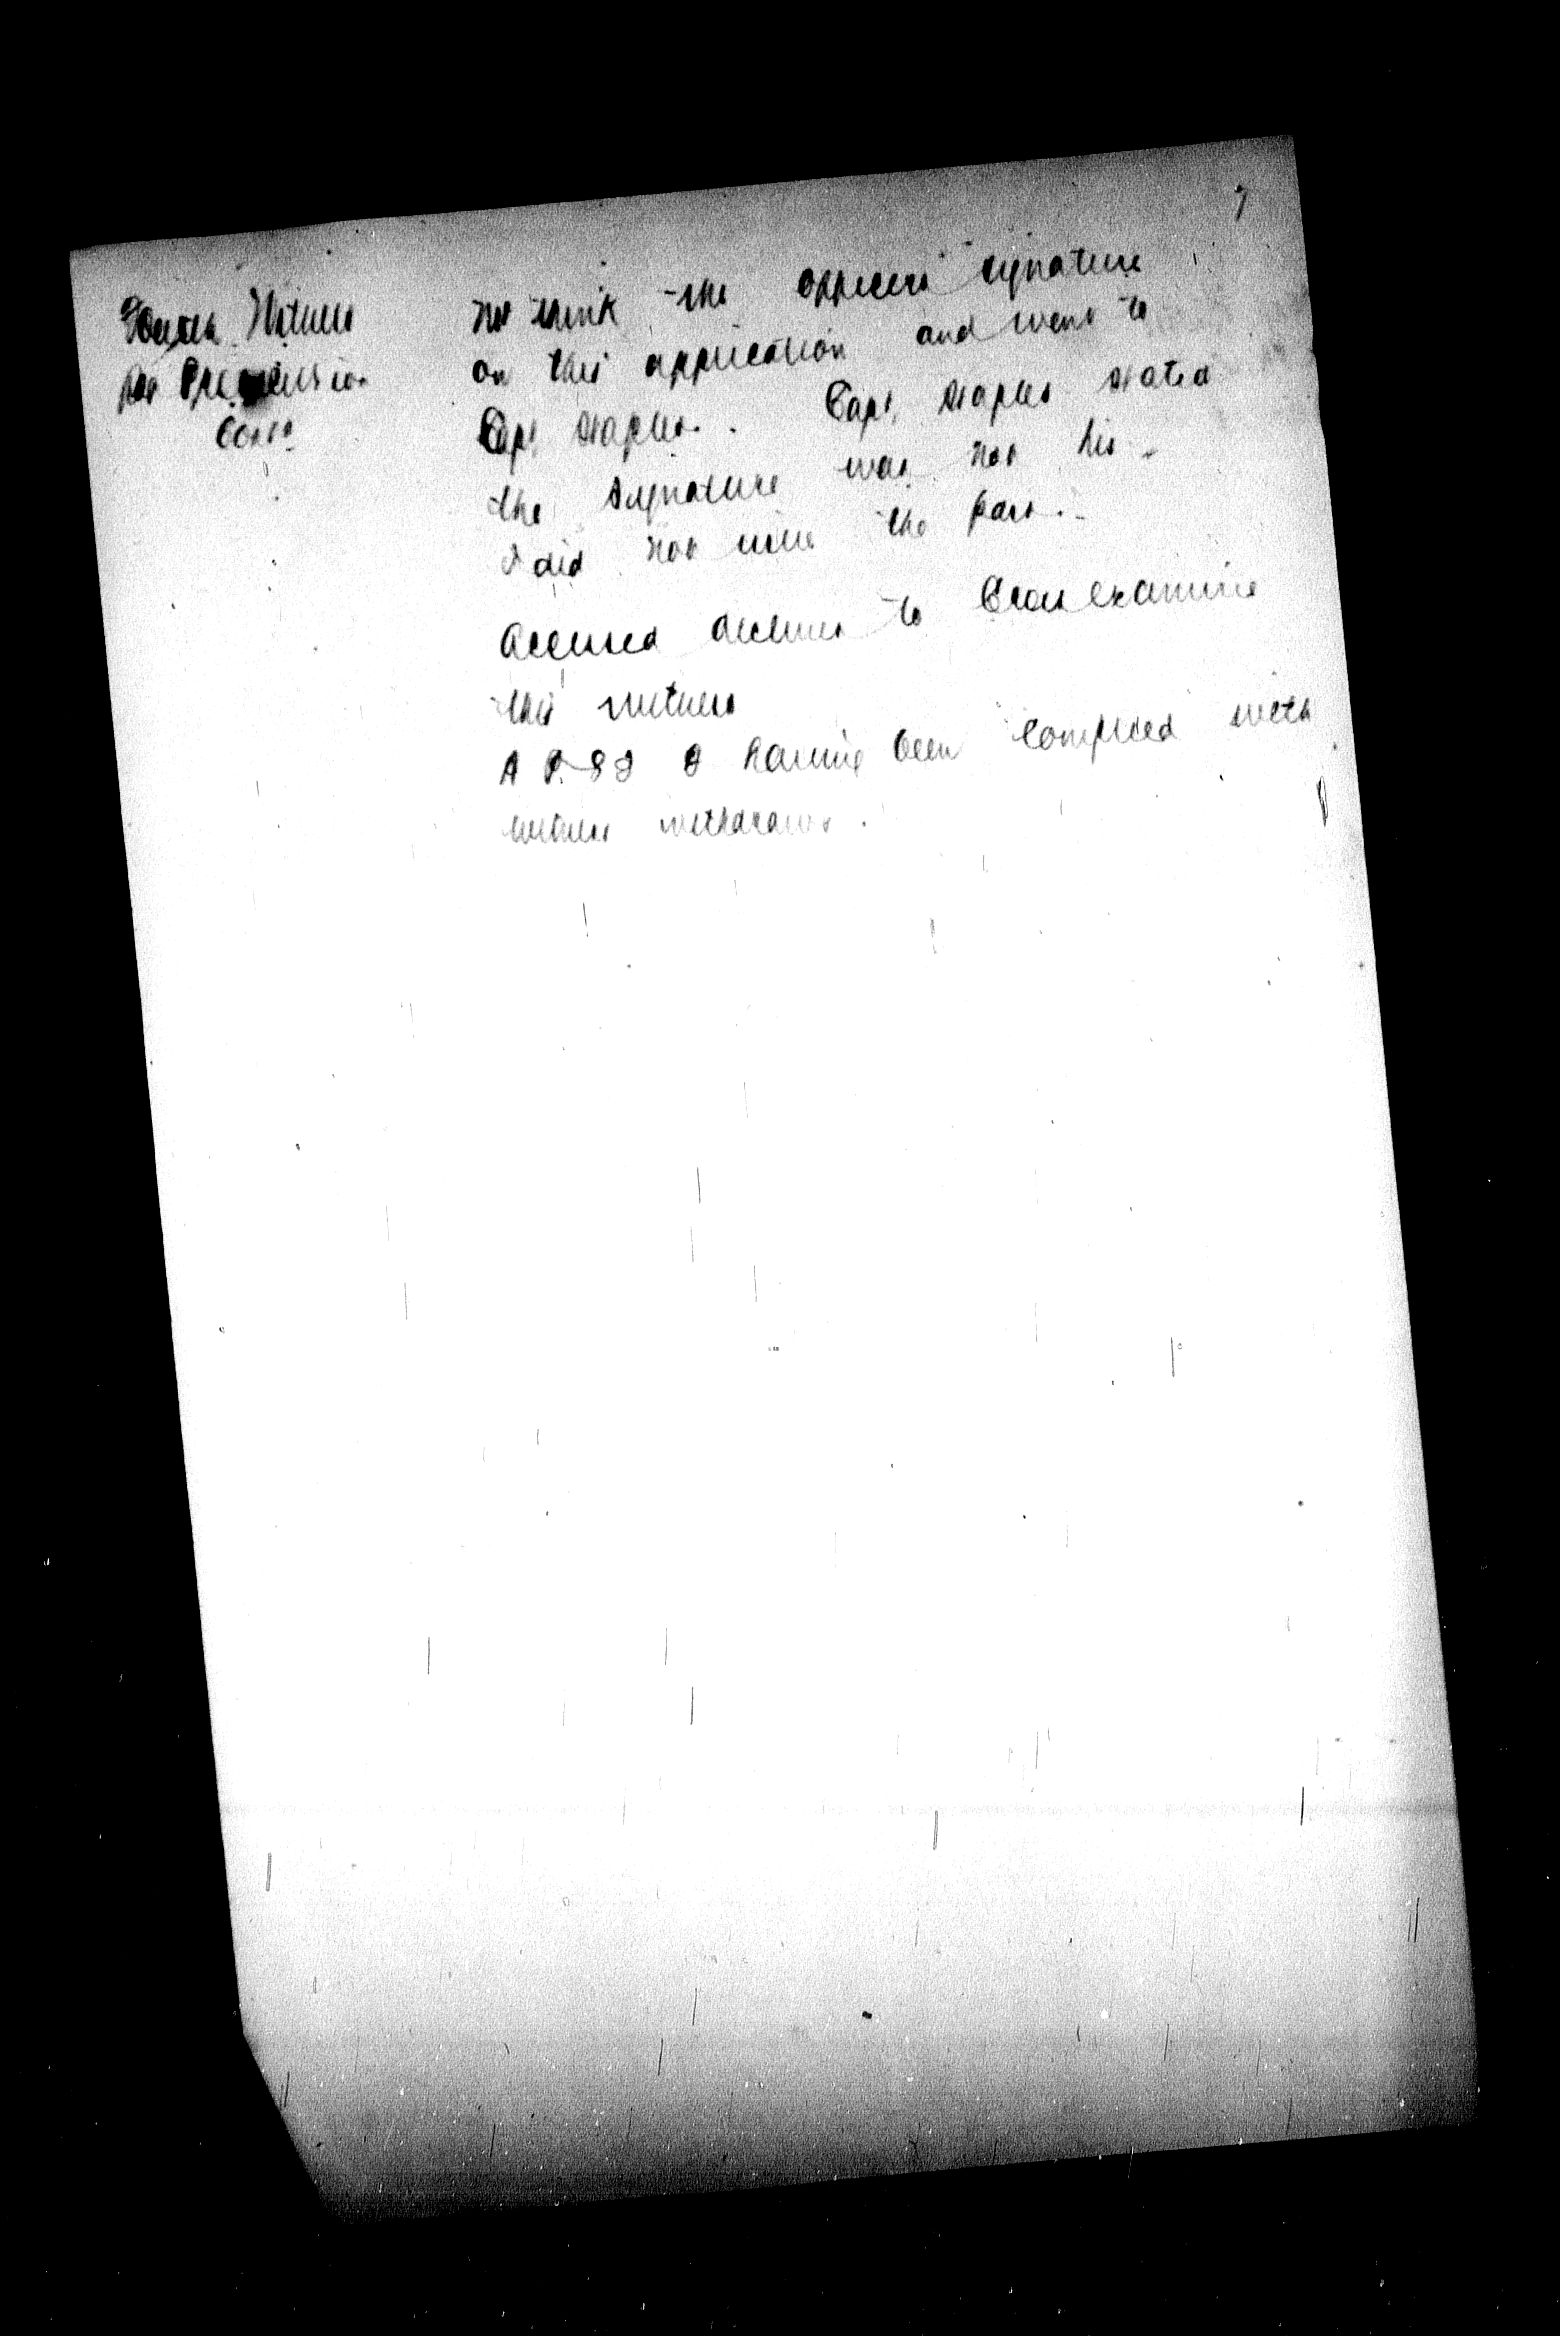 7
Fourth Witness
for Prosecution
Contd
not think the officers signature
on this application and went to
Capt Staples. Capt, Staples stated
the signature was not his -
I did not issue the pass. -
Accused declines to Cross examine
this witness
R P 83 B having been complied with
witness withdraws.